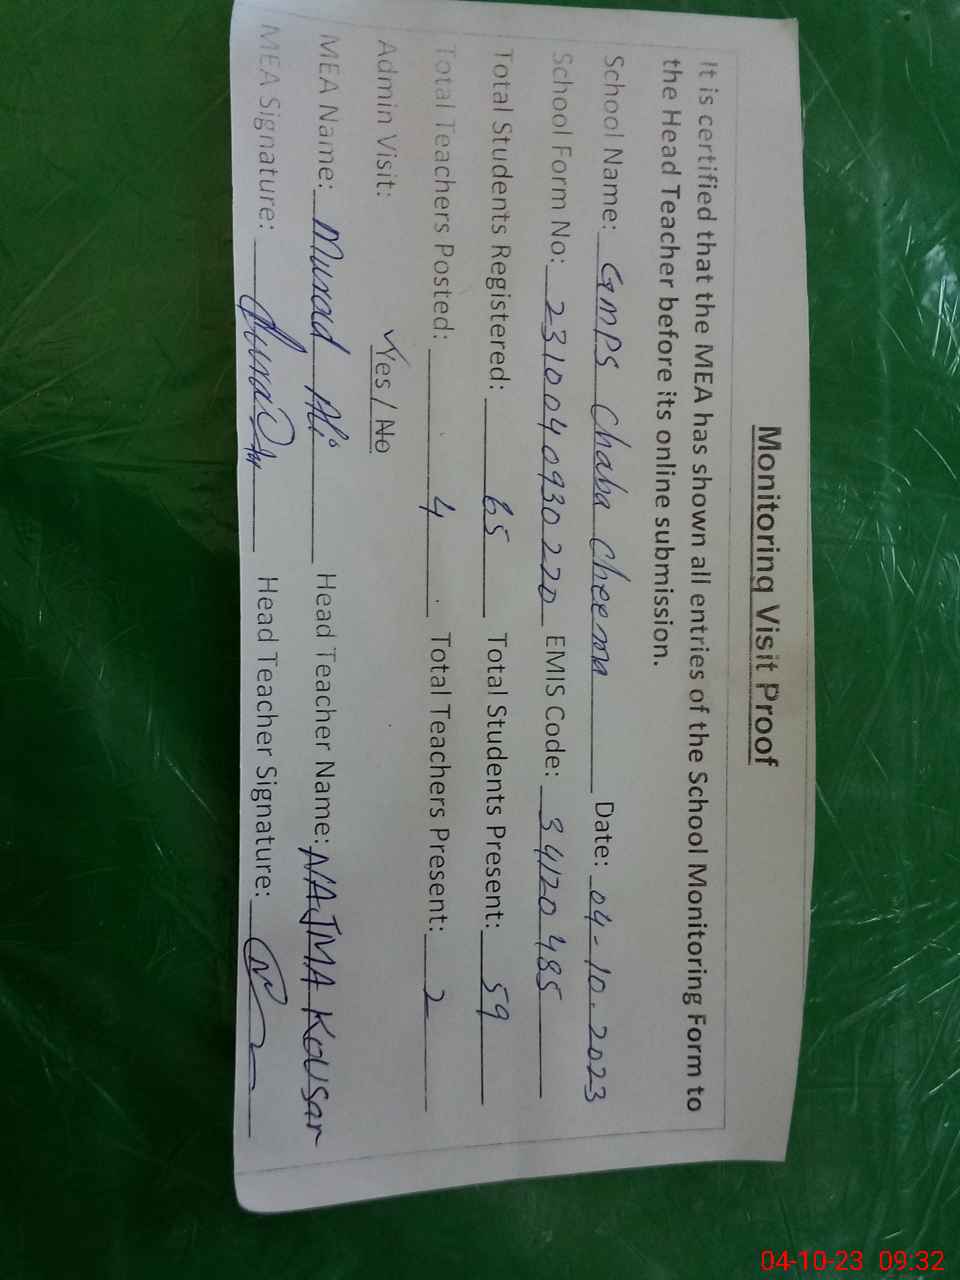 Monitoring Visit Proof
It is certified that the MEA has shown all entries of the School Monitoring Form to
the Head Teacher before its online submission.
School Name: GMPS Chaha Cheema Date: 04-10-2023
School Form No: 2310040930220 EMIS Code: 34120485
Total Students Registered: 65 Total Students Present: 59
Total Teachers Posted: 4 Total Teachers Present: 2
Admin Visit: ✓Yes / No
MEA Name: Murad Ali Head Teacher Name: NAJMA KOUSAR
MEA Signature: Head Teacher Signature:
04-10-23 09:32